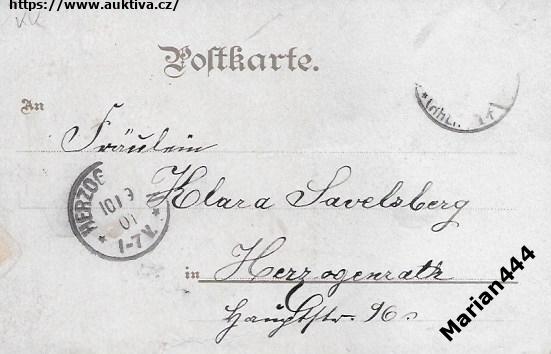 https://www.auktiva.cz/
Postkarte.
An
Fräulein
Klara Savelsberg
in Herzogenrath
Hauptstr. 96.
HERZOG
10 9
01
1-7V.
Marian444